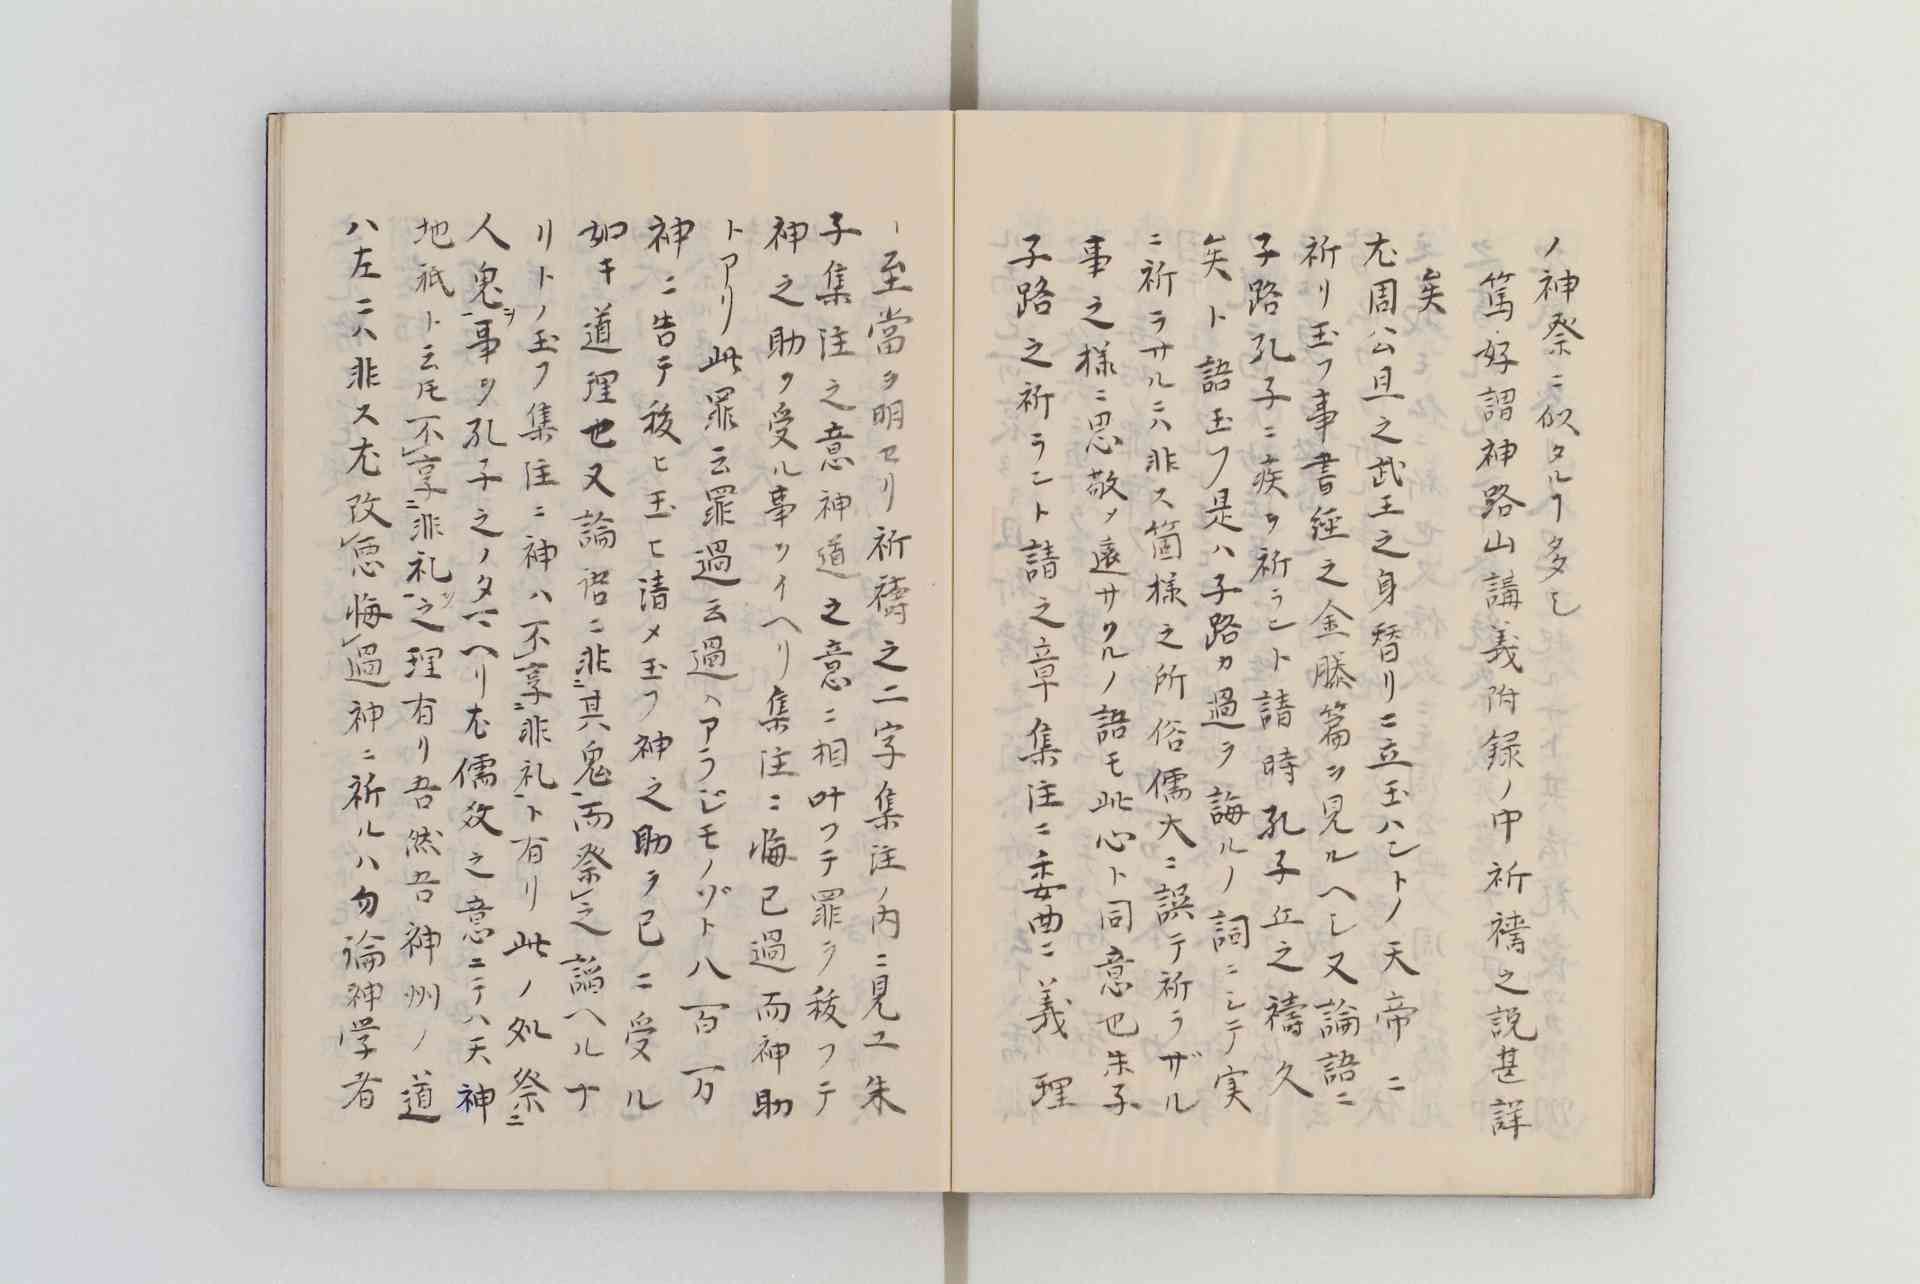 ノ神祭ニ似タルヿ多シ
篤好謂神路山講義附録ノ中祈禱之説甚詳
矣
尤周公旦之武王之身替リニ立玉ハントノ天帝ニ
祈リ玉フ事書経之金滕篇ニ見ルヘシ又論語ニ
子路孔子ニ疾ヲ祈ラント請時孔子丘之禱久
矣ト語玉フ是ハ子路カ過ヲ誨ルノ詞ニシテ実
ニ祈ラサルニハ非ス箇様之所俗儒大ニ誤テ祈ラザル
事之様ニ思敬メ遠サクルノ語モ此心ト同意也朱子
子路之祈ラント請之章集注ニ委曲ニ義理
ノ至當ヲ明セリ祈禱之二字集注ノ内ニ見ユ朱
子集注之意神道之意ニ相叶フテ罪ヲ秡フテ
神之助ヲ受ル事ヲイヘリ集注ニ悔已過而神助
トアリ此罪云罪過云過ハアラジモノゾト八百万
神ニ告テ秡ヒ玉ヒ清メ玉フ神之助ラ已ニ受ル
如キ道理也又論語ニ非ニ其鬼一而祭之謟ヘルナ
リトノ玉フ集注ニ神ハ不享ニ非礼一ト有リ此ノ処祭ニ
人鬼一事ヲ孔子之ノタマヘリ尤儒教之意ニテハ天神
地祇ト云𪜈不享ニ非礼一之理有リ吾然吾神州ノ道
ハ左ニハ非ス尤改悪悔過神ニ祈ルハ勿論神学者